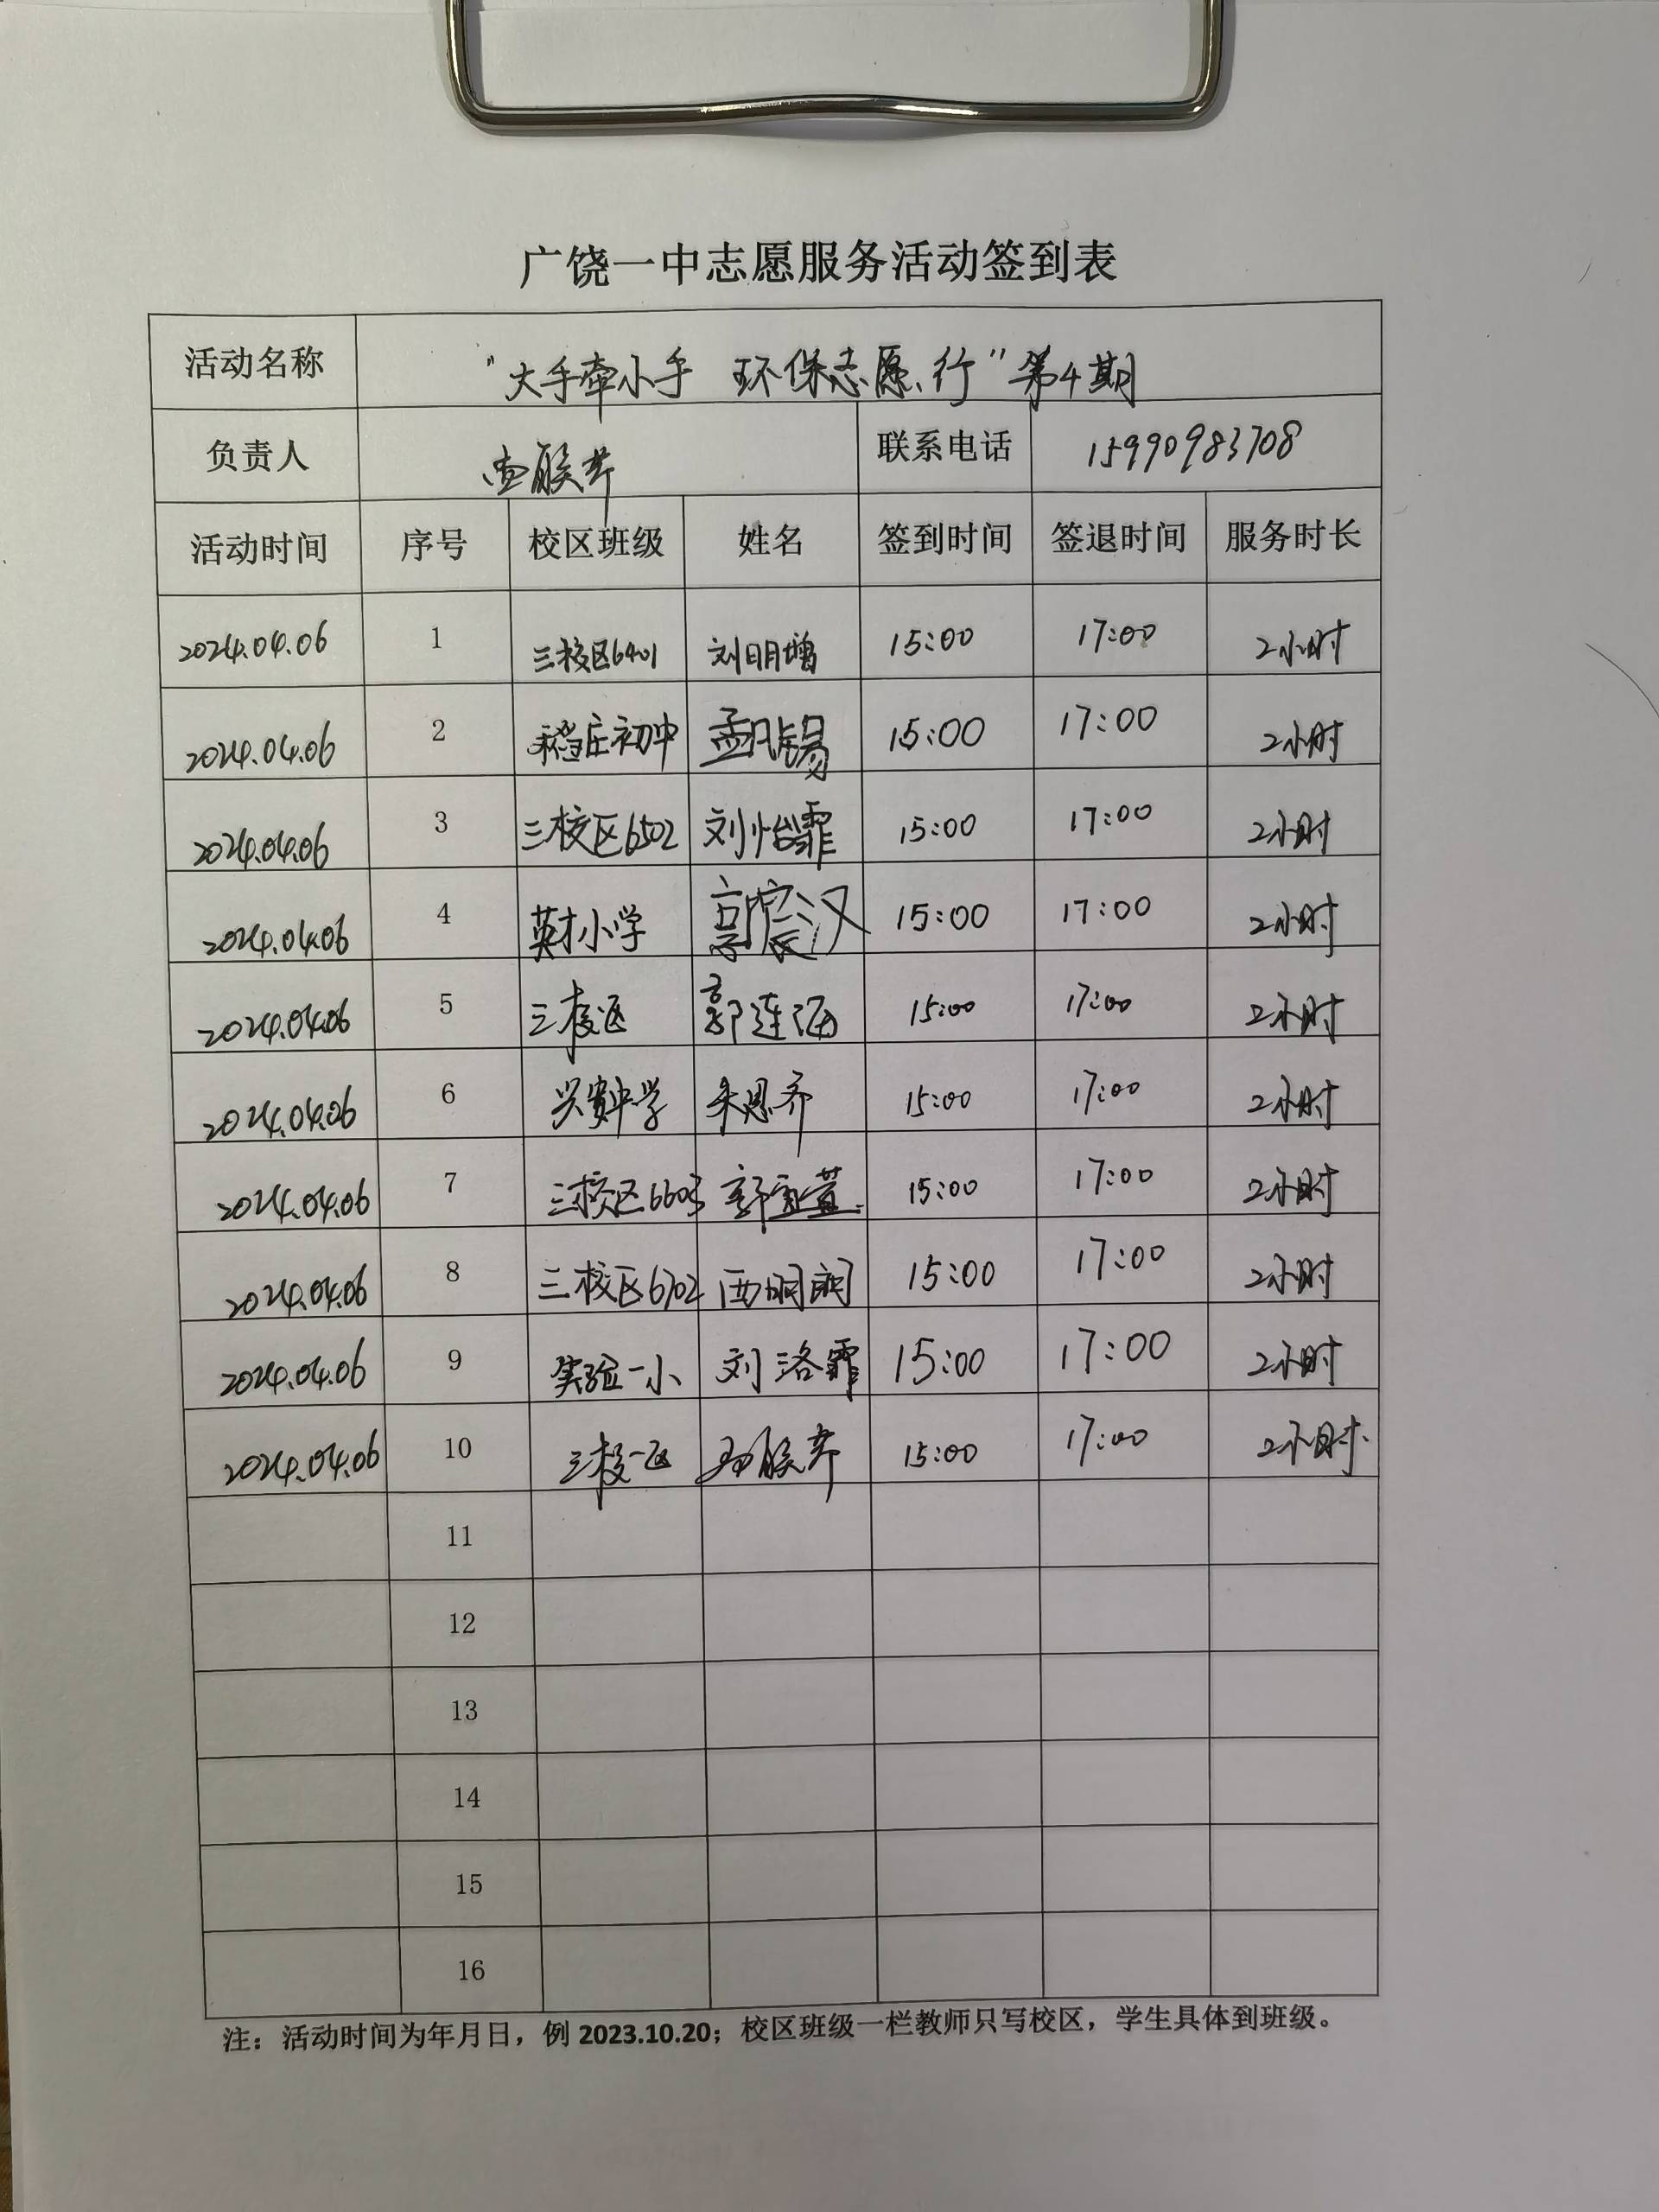 广饶一中志愿服务活动签到表
活动名称 "大手牵小手 环保志愿行"第4期
负责人 联系电话 15990983708
活动时间 序号 校区班级 姓名 签到时间 签退时间 服务时长
2024.04.06 1 三校区6401 刘明增 15:00 17:00 2小时
2024.04.06 2 稻庄初中 孟凡锡 15:00 17:00 2小时
2024.04.06 3 三校区6502 刘怡霏 15:00 17:00 2小时
2024.04.06 4 英才小学 郭宸汉 15:00 17:00 2小时
2024.04.06 5 三校区 郭连海 15:00 17:00 2小时
2024.04.06 6 中学 朱恩齐 15:00 17:00 2小时
2024.04.06 7 三校区6603 郭宜萱 15:00 17:00 2小时
2024.04.06 8 三校区6702 15:00 17:00 2小时
2024.04.06 9 实验一小 刘洛霏 15:00 17:00 2小时
2024.04.06 10 三校区 15:00 17:00 2小时
11
12
13
14
15
16
注：活动时间为年月日，例 2023.10.20；校区班级一栏教师只写校区，学生具体到班级。